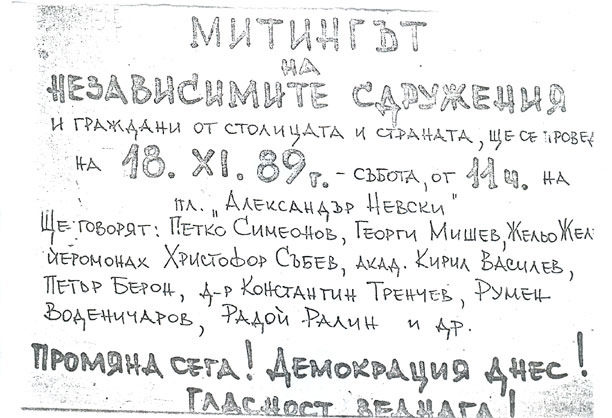 МИТИНГЪТ
НА
НЕЗАВИСИМИТЕ СДРУЖЕНИЯ
И ГРАЖДАНИ ОТ СТОЛИЦАТА И СТРАНАТА, ЩЕ СЕ ПРОВЕД
НА 18. XI. 89г. - СЪБОТА, ОТ 11ч. НА
ПЛ. "АЛЕКСАНДЪР НЕВСКИ"
ЩЕ ГОВОРЯТ: ПЕТКО СИМЕОНОВ, ГЕОРГИ МИШЕВ, ЖЕЛЬО ЖЕЛ
ЙЕРОМОНАХ ХРИСТОФОР СЪБЕВ, АКАД. КИРИЛ ВАСИЛЕВ,
ПЕТЪР БЕРОН, Д-Р КОНСТАНТИН ТРЕНЧЕВ, РУМЕН
ВОДЕНИЧАРОВ, РАДОЙ РАЛИН И ДР.
ПРОМЯНА СЕГА! ДЕМОКРАЦИЯ ДНЕС!
ГЛАСНОСТ ВЕДНАГА!